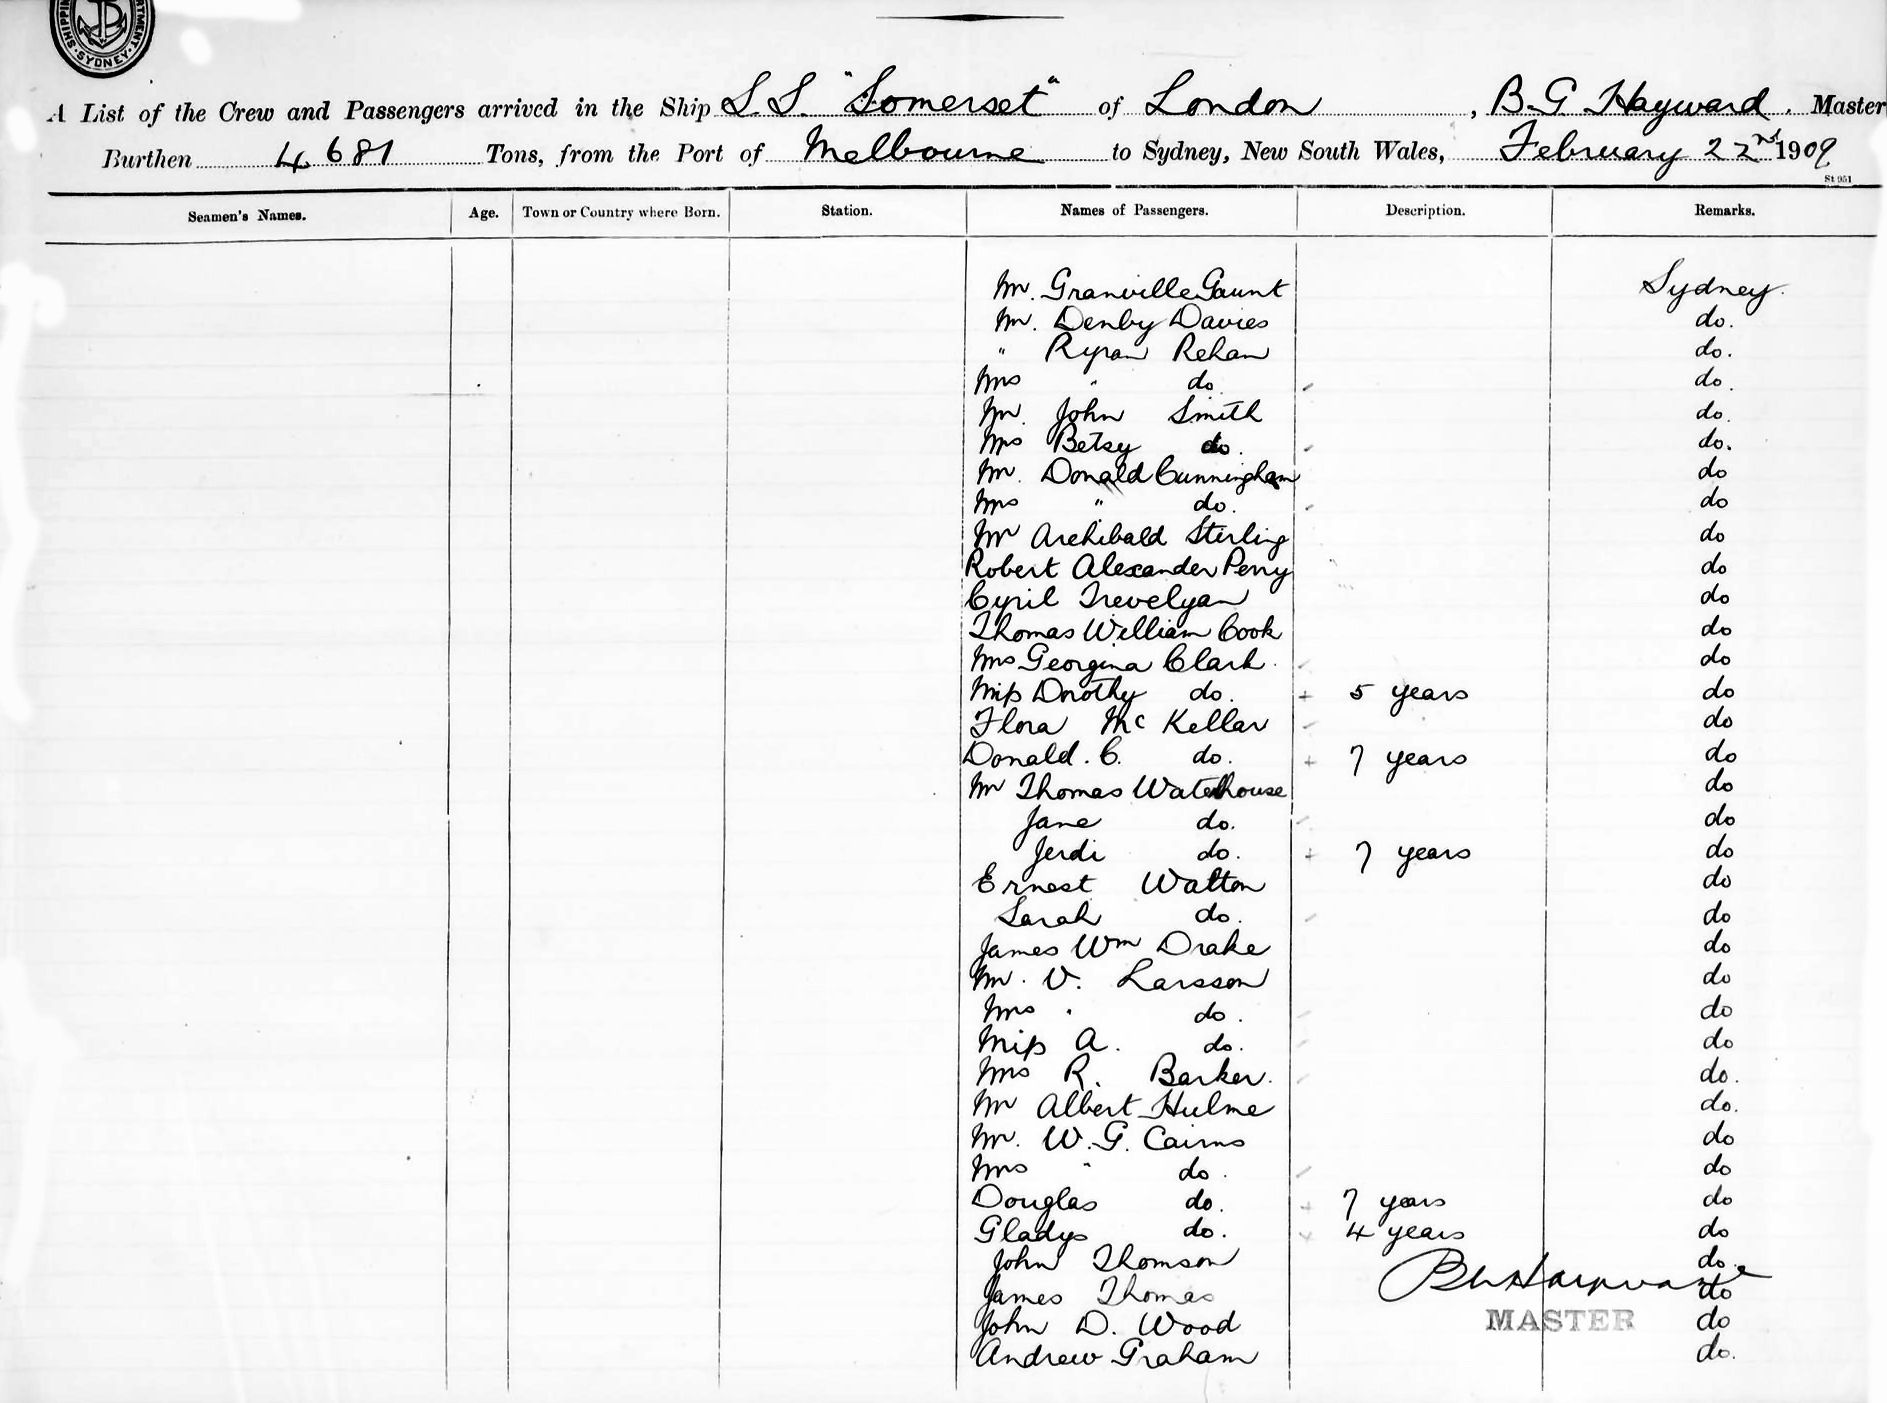 SYDNEY
A List of the Crew and Passengers arrived in the Ship S.S. "Somerset" of London, B. G. Hayward. Master
Burthen 4681 Tons, from the Port of Melbourne to Sydney, New South Wales, February 22nd 1909
St 951
Seamen's Names. Age. Town or Country where Born. Station. Names of Passengers. Description. Remarks.
Mr. Granville Gaunt Sydney.
Mr. Denby Davies do.
" Ryran Rehan do.
Mrs " do do.
Mr. John Smith do.
Mrs Betsy do. do.
Mr. Donald Cunningham do
Mrs " do. do
Mr Archibald Stirling do
Robert Alexander Perry do
Cyril Trevelyan do
Thomas William Cook do
Mrs Georgina Clark. do
Miss Dorothy do. + 5 years do
Flora Mc Kellar do
Donald. C. do. + 7 years do
Mr Thomas Waterhouse do
Jane do. do
Jerdi do. + 7 years do
Ernest Walton do
Sarah do. do
James Wm Drake do
Mr. V. Larsson do
Mrs " do. do
Miss A. do. do
Mrs R. Barker. do.
Mr Albert Hulme do.
Mr. W. G. Cairns do
Mrs " do. do
Douglas do. + 7 years do
Gladys do. + 4 years do
John Thomson do.
James Thomas do
John D. Wood MASTER do
Andrew Graham do.